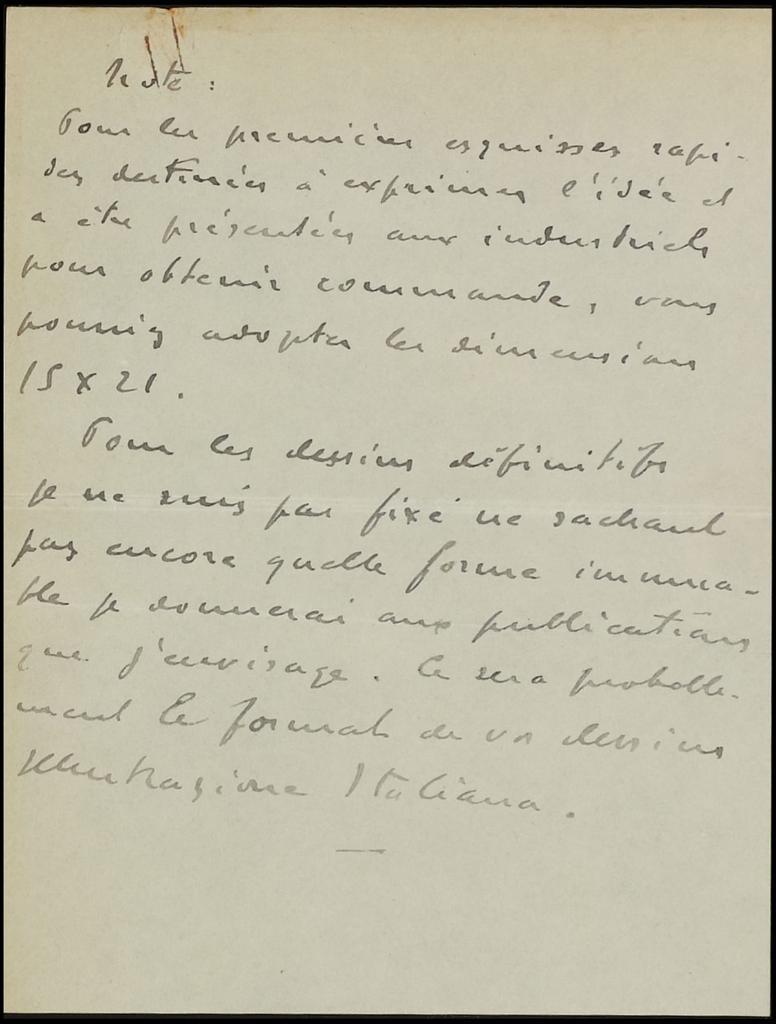 Note :
Pour les premières esquisses rapi-
des destinées à exprimer l'idée et
a être présentées aux industriels
pour obtenir commande, vous
pourriez adopter les dimensions
15 X 21.
Pour les dessins définitifs
je ne suis pas fixé ne sachant
pas encore quelle forme immua-
ble je donnerai aux publications
que j'envisage. Ce sera probable-
ment le format de vos dessins
Illustrazione Italiana.